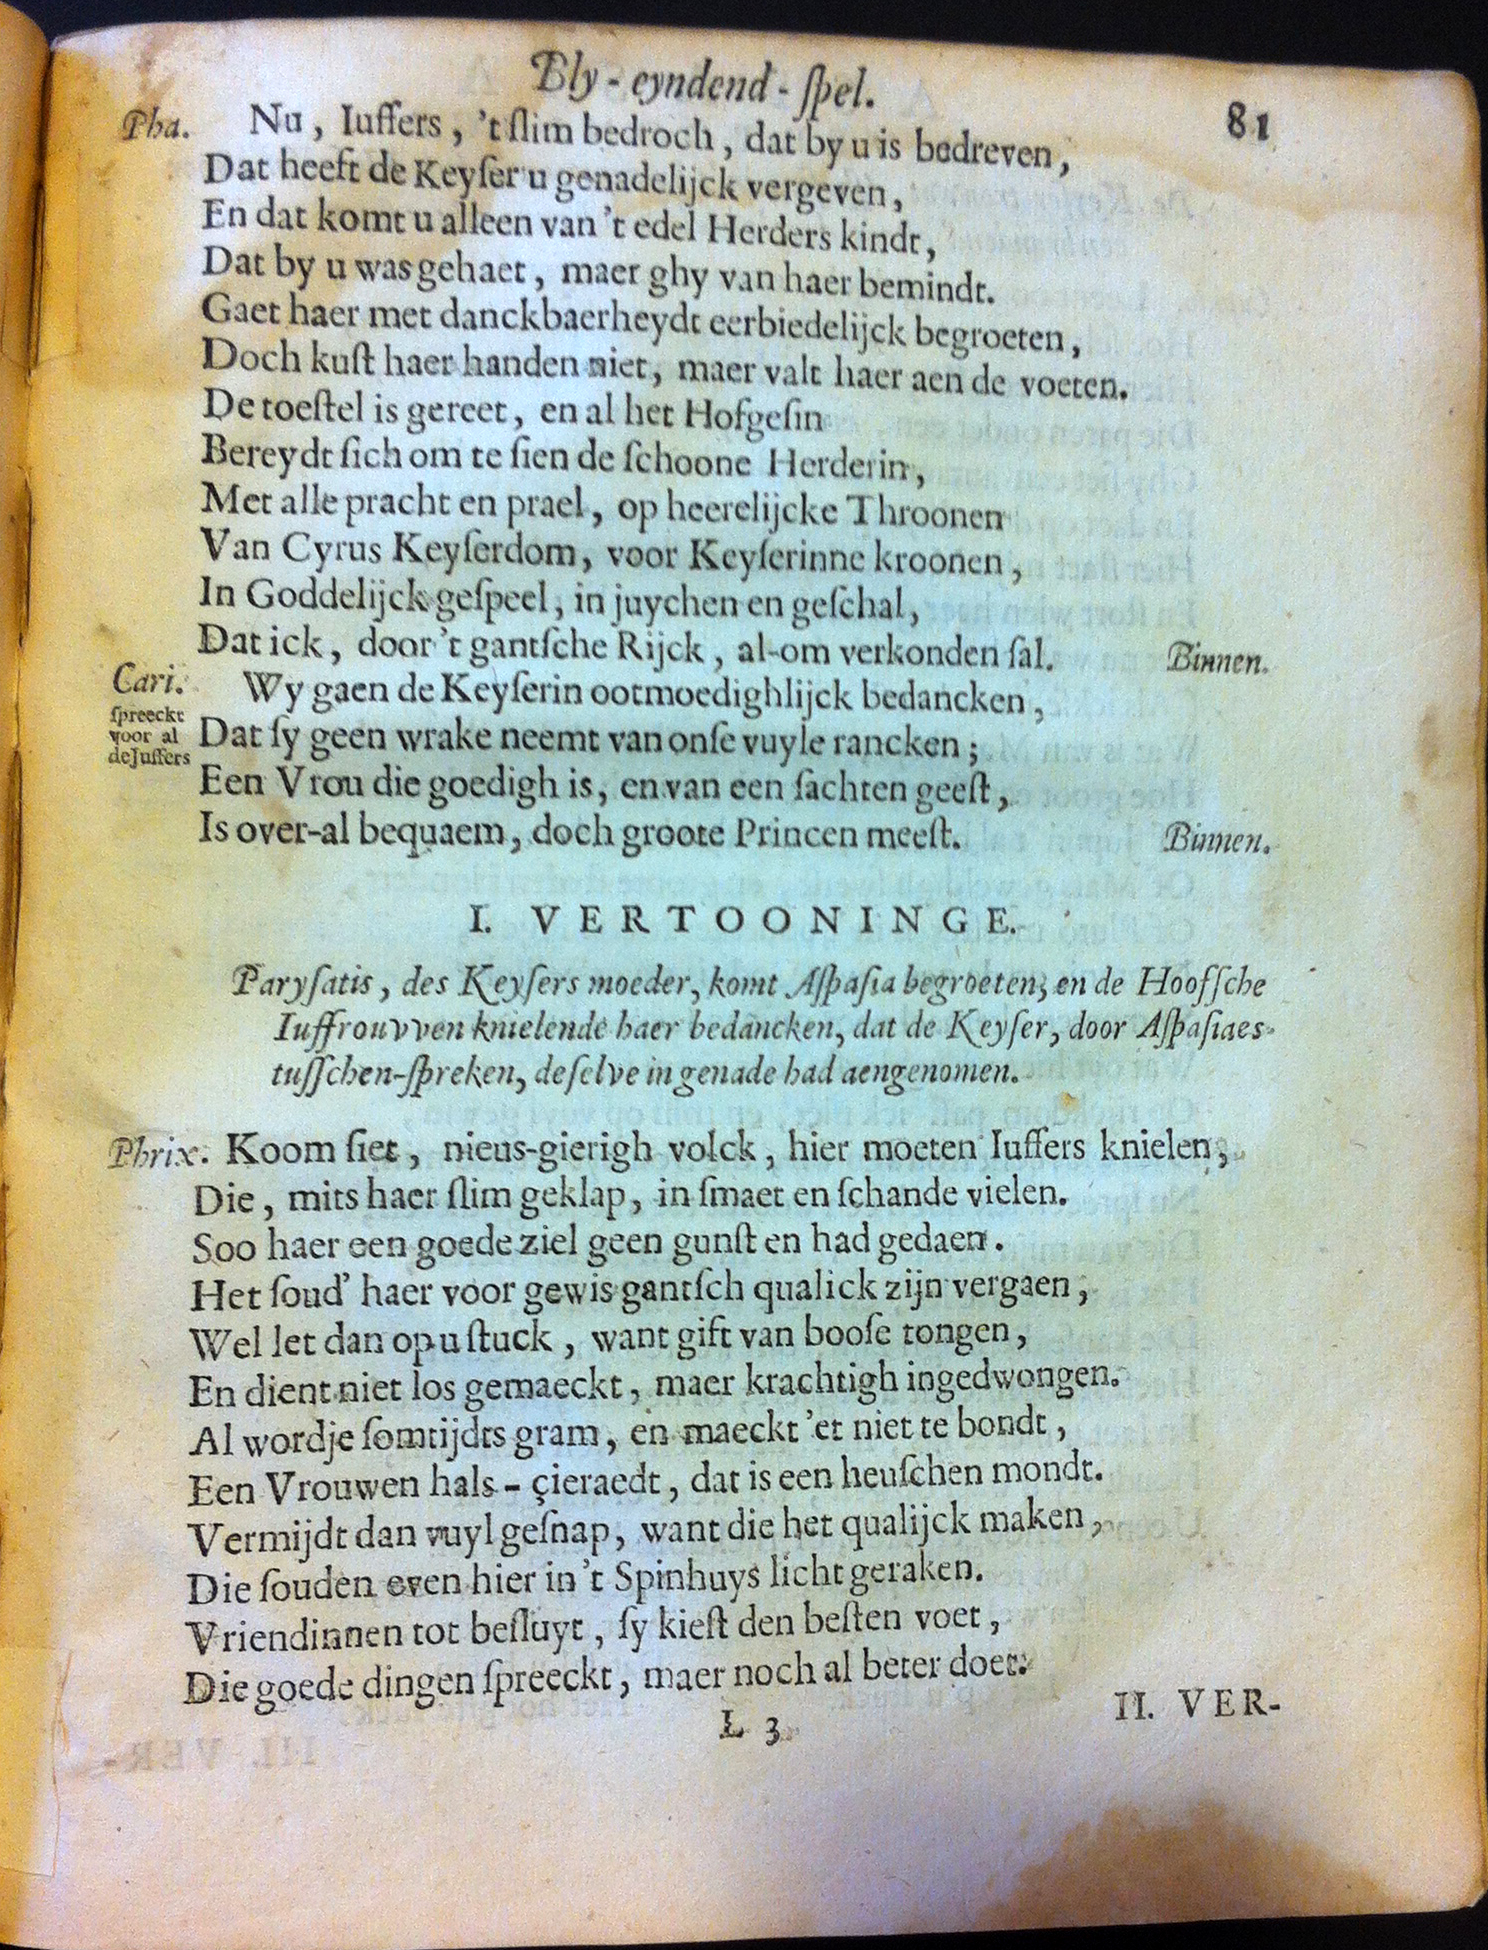 Bly-eyndend-ſpel. 81
Pha. Nu, Iuſſers, 't ſlim bedroch, dat by u is bedreven,
Dat heeft de Keyſer u genadelijck vergeven,
En dat komt u alleen van 't edel Herders kindt,
Dat by u was gehaet, maer ghy van haer bemindt.
Gaet haer met danckbaerheydt eerbiedelijck begroeten,
Doch kuſt haer handen niet, maer valt haer aen de voeten.
De toeſtel is gereet, en al het Hofgeſin
Bereydt ſich om te ſien de ſchoone Herderin,
Met alle pracht en prael, op heerelijcke Throonen
Van Cyrus Keyſerdom, voor Keyſerinne kroonen,
In Goddelijck geſpeel, in juychen en geſchal,
Dat ick, door 't gantſche Rijck, al-om verkonden ſal. Binnen.
Cari. Wy gaen de Keyſerin ootmoedighlijck bedancken,
ſpreeckt voor al de Juſſers
Dat ſy geen wrake neemt van onſe vuyle rancken;
Een Vrou die goedigh is, en van een ſachten geeſt,
Is over-al bequaem, doch groote Princen meeſt. Binnen.
I. VERTOONINGE.
Paryſatis, des Keyſers moeder, komt Aſpaſia begroeten; en de Hoofſche
Iuffrouvven knielende haer bedancken, dat de Keyſer, door Aſpaſiaes
tuſſchen-ſpreken, deſelve in genade had aengenomen.
Phrix. Koom ſiet, nieus-gierigh volck, hier moeten Iuſſers knielen,
Die, mits haer ſlim geklap, in ſmaet en ſchande vielen.
Soo haer een goede ziel geen gunſt en had gedaen.
Het ſoud' haer voor gewis gantſch qualick zijn vergaen,
Wel let dan op u ſtuck, want gift van booſe tongen,
En dient niet los gemaeckt, maer krachtigh ingedwongen.
Al wordje ſomtijdts gram, en maeckt 'et niet te bondt,
Een Vrouwen hals-çieraedt, dat is een heuſchen mondt.
Vermijdt dan vuyl geſnap, want die het qualijck maken,
Die ſouden even hier in 't Spinhuys licht geraken.
Vriendinnen tot beſluyt, ſy kieſt den beſten voet,
Die goede dingen ſpreeckt, maer noch al beter doet.
L 3 II. VER-